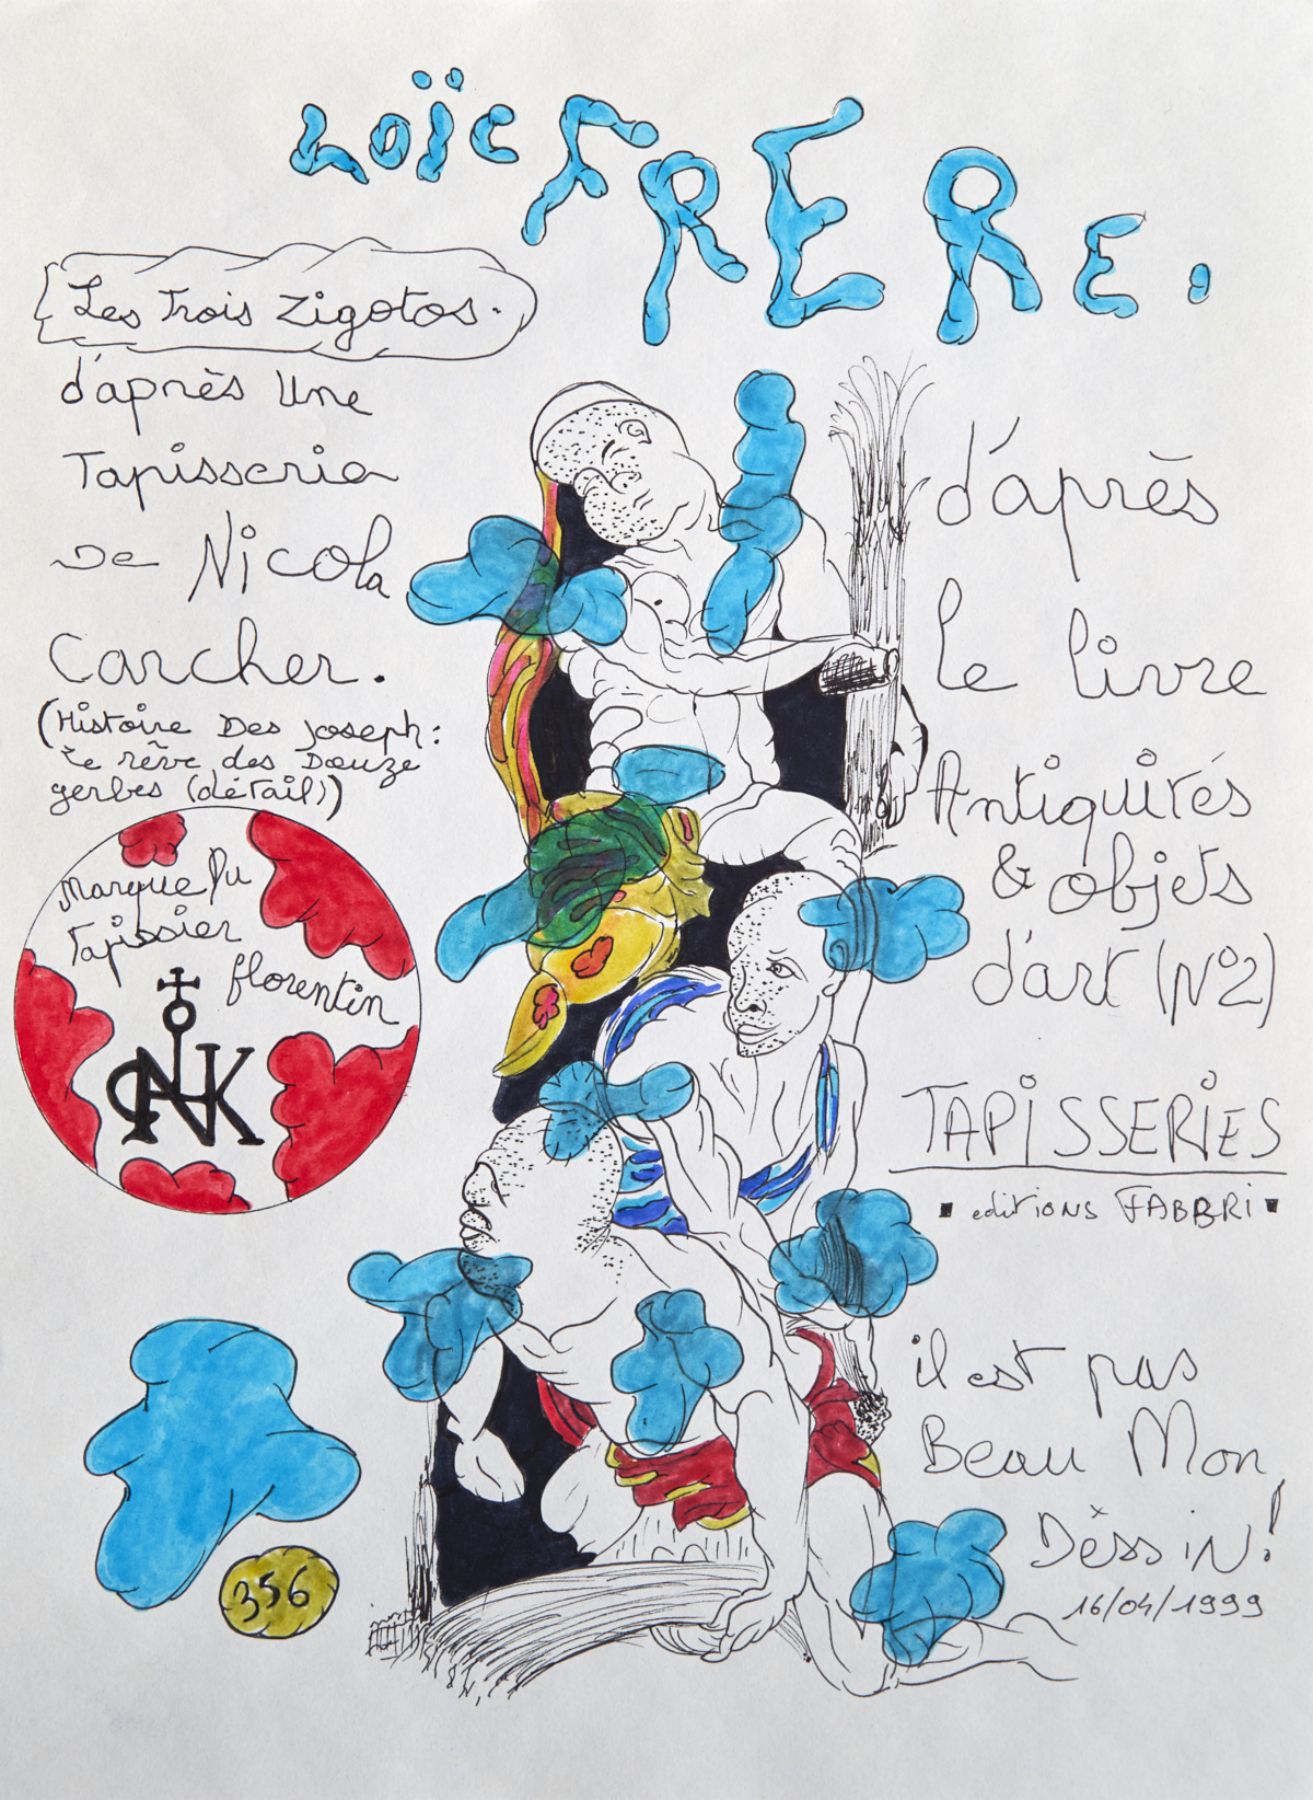 Loïc FRERE.
Les Trois Zigotos.
d'après Une
Tapisserie
de Nicola
Carcher.
(Histoire Des Joseph:
Le rêve des Douze
gerbes (détail))
Marque Du
Tapissier
florentin
NK
356
d'après
le livre
Antiquités
& objets
d'art (N°2)
TAPISSERIES
▪ editions FABBRI ▪
il est pas
Beau Mon
Dèssin!
16/04/1999